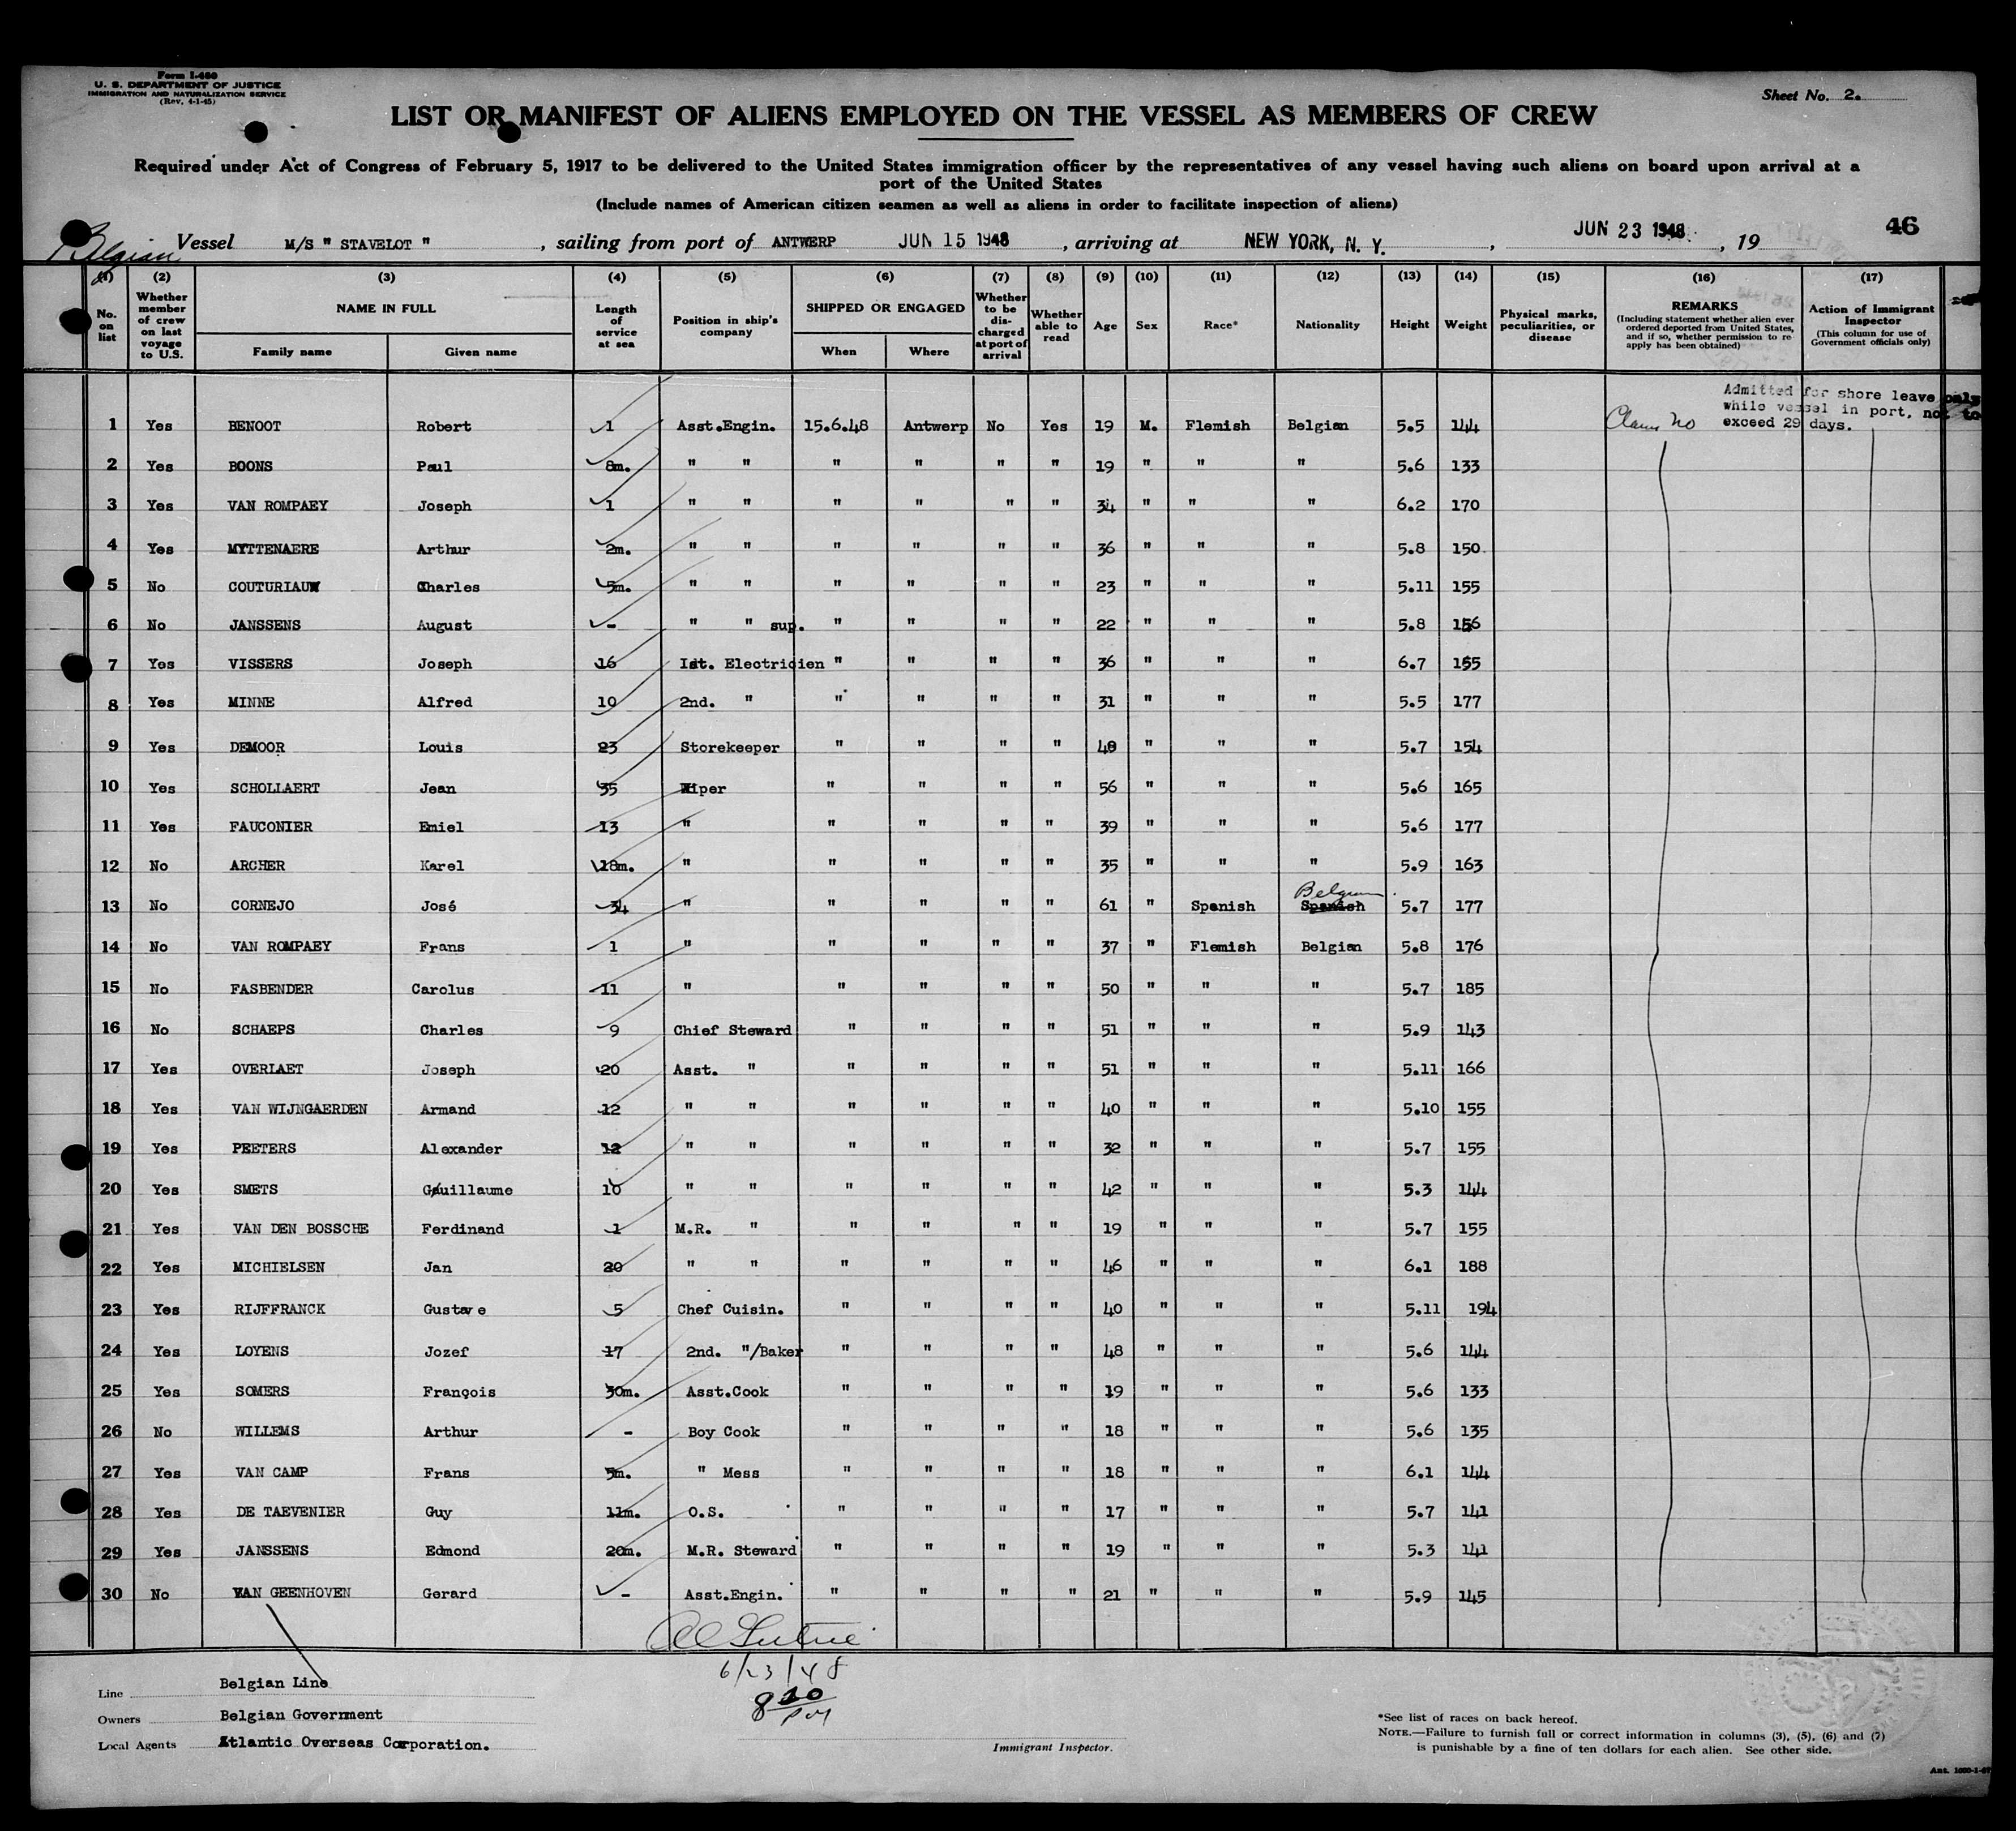 Form I-480
U. S. DEPARTMENT OF JUSTICE
IMMIGRATION AND NATURALIZATION SERVICE
(Rev. 4-1-45)
Sheet No. 2.
LIST OR MANIFEST OF ALIENS EMPLOYED ON THE VESSEL AS MEMBERS OF CREW
Required under Act of Congress of February 5, 1917 to be delivered to the United States immigration officer by the representatives of any vessel having such aliens on board upon arrival at a
port of the United States
(Include names of American citizen seamen as well as aliens in order to facilitate inspection of aliens)
46
Belgian Vessel M/S " STAVELOT " , sailing from port of ANTWERP JUN 15 1948 , arriving at NEW YORK, N. Y. , JUN 23 1948 , 19
(1) (2) (3) (4) (5) (6) (7) (8) (9) (10) (11) (12) (13) (14) (15) (16) (17)
No. on list
Whether member of crew on last voyage to U.S.
NAME IN FULL
Family name Given name
Length of service at sea
Position in ship's company
SHIPPED OR ENGAGED
When Where
Whether to be discharged at port of arrival
Whether able to read
Age Sex Race* Nationality Height Weight
Physical marks, peculiarities, or disease
REMARKS
(Including statement whether alien ever ordered deported from United States, and if so, whether permission to reapply has been obtained)
Action of Immigrant Inspector
(This column for use of Government officials only)
Admitted for shore leave only
while vessel in port, not to
exceed 29 days.
1 Yes BENOOT Robert 1 Asst.Engin. 15.6.48 Antwerp No Yes 19 M. Flemish Belgian 5.5 144 Claims no
2 Yes BOONS Paul 8m. " " " " " " 19 " " " 5.6 133
3 Yes VAN ROMPAEY Joseph 1 " " " " " " 34 " " " 6.2 170
4 Yes MYTTENAERE Arthur 2m. " " " " " " 36 " " " 5.8 150
5 No COUTURIAUW Charles 5m. " " " " " " 23 " " " 5.11 155
6 No JANSSENS August - " " sup. " " " " 22 " " " 5.8 156
7 Yes VISSERS Joseph 16 1st. Electricien " " " " 36 " " " 6.7 155
8 Yes MINNE Alfred 10 2nd. " " " " " 31 " " " 5.5 177
9 Yes DEMOOR Louis 23 Storekeeper " " " " 48 " " " 5.7 154
10 Yes SCHOLLAERT Jean 35 Wiper " " " " 56 " " " 5.6 165
11 Yes FAUCONIER Emiel 13 " " " " " 39 " " " 5.6 177
12 No ARCHER Karel 18m. " " " " " 35 " " " 5.9 163
13 No CORNEJO José 34 " " " " " 61 " Spanish Spanish Belgian 5.7 177
14 No VAN ROMPAEY Frans 1 " " " " " 37 " Flemish Belgian 5.8 176
15 No FASBENDER Carolus 11 " " " " " 50 " " " 5.7 185
16 No SCHAEPS Charles 9 Chief Steward " " " " 51 " " " 5.9 143
17 Yes OVERLAET Joseph 20 Asst. " " " " " 51 " " " 5.11 166
18 Yes VAN WIJNGAERDEN Armand 12 " " " " " " 40 " " " 5.10 155
19 Yes PEETERS Alexander 12 " " " " " " 32 " " " 5.7 155
20 Yes SMETS Guillaume 10 " " " " " " 42 " " " 5.3 144
21 Yes VAN DEN BOSSCHE Ferdinand 1 M.R. " " " " " 19 " " " 5.7 155
22 Yes MICHIELSEN Jan 20 " " " " " " 46 " " " 6.1 188
23 Yes RIJFFRANCK Gustave 5 Chef Cuisin. " " " " 40 " " " 5.11 194
24 Yes LOYENS Jozef 17 2nd. "/Baker " " " " 48 " " " 5.6 144
25 Yes SOMERS François 30m. Asst.Cook " " " " 19 " " " 5.6 133
26 No WILLEMS Arthur - Boy Cook " " " " 18 " " " 5.6 135
27 Yes VAN CAMP Frans 5m. " Mess " " " " 18 " " " 6.1 144
28 Yes DE TAEVENIER Guy 11m. O.S. " " " " 17 " " " 5.7 141
29 Yes JANSSENS Edmond 20m. M.R. Steward " " " " 19 " " " 5.3 141
30 No VAN GEENHOVEN Gerard - Asst.Engin. " " " " 21 " " " 5.9 145
6/23/48
8 30 PM
Line Belgian Line
Owners Belgian Government
Local Agents Atlantic Overseas Corporation.
Immigrant Inspector.
*See list of races on back hereof.
NOTE.—Failure to furnish full or correct information in columns (3), (5), (6) and (7)
is punishable by a fine of ten dollars for each alien. See other side.